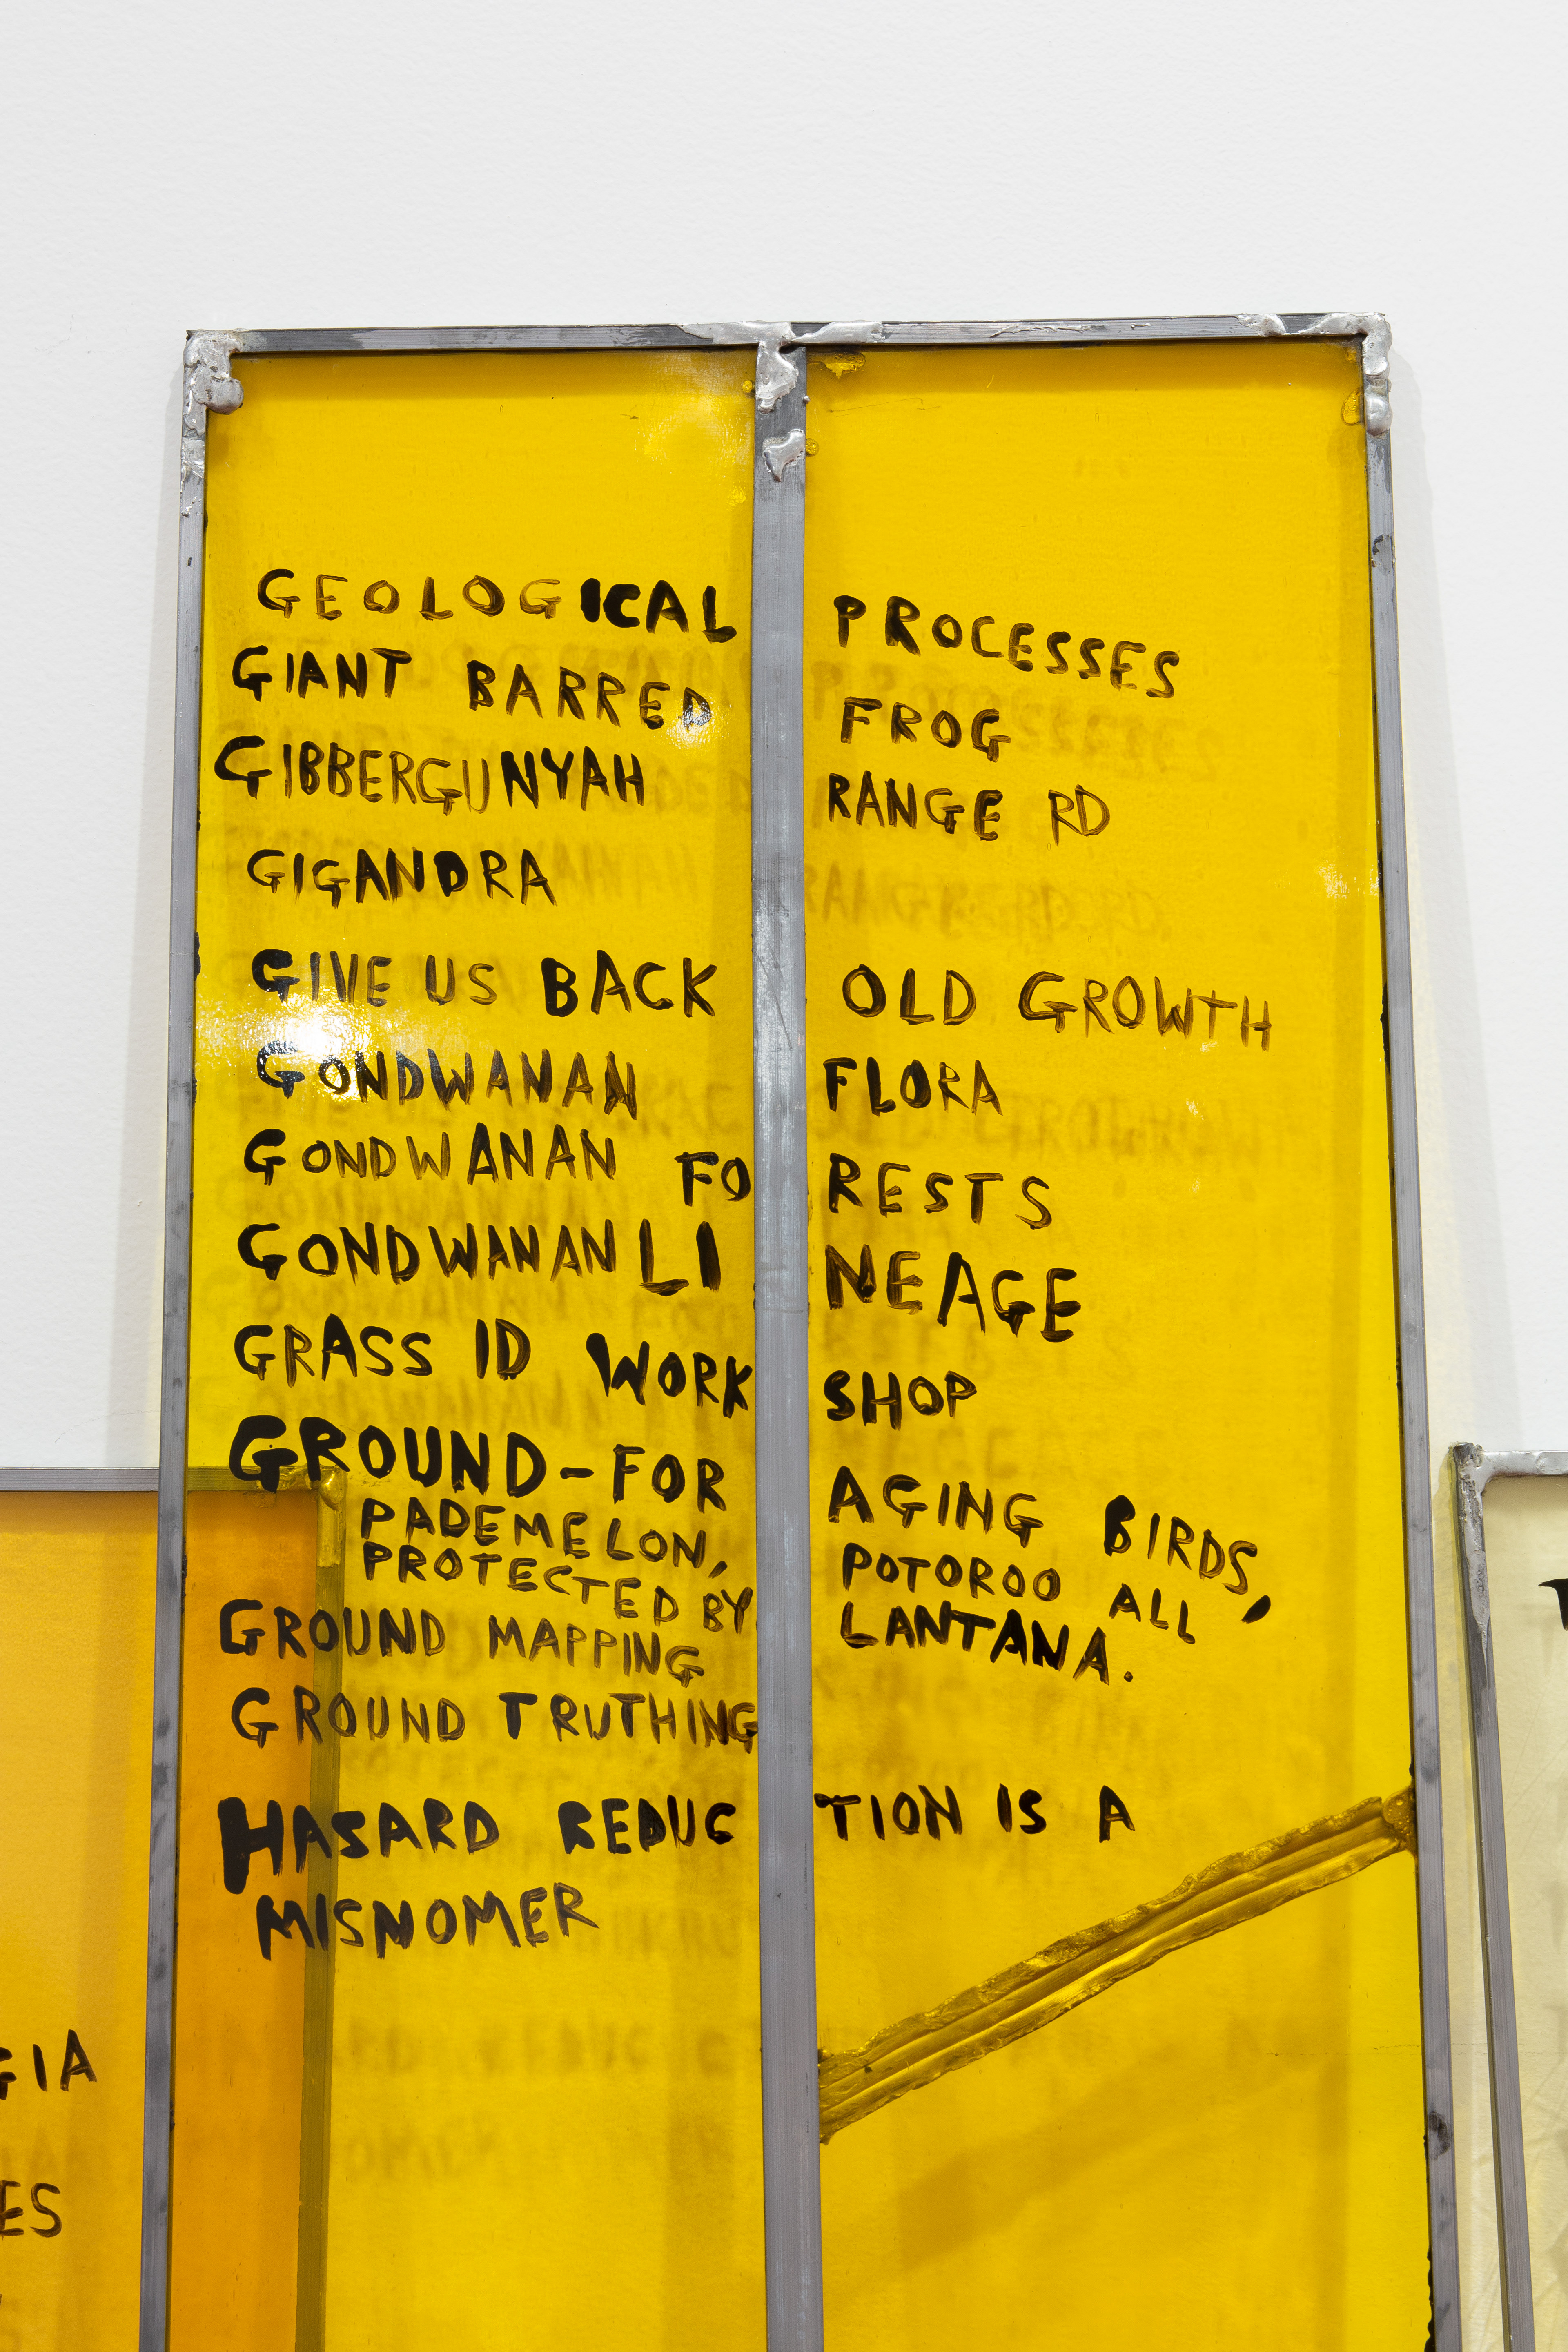 GEOLOGICAL PROCESSES
GIANT BARRED FROG
GIBBERGUNYAH RANGE RD
GIGANDRA
GIVE US BACK OLD GROWTH
GONDWANAN FLORA
GONDWANAN FORESTS
GONDWANAN LINEAGE
GRASS ID WORKSHOP
GROUND-FORAGING BIRDS,
PADEMELON, POTOROO ALL
PROTECTED BY LANTANA.
GROUND MAPPING
GROUND TRUTHING
HASARD REDUCTION IS A
MISNOMER
GIA
ES